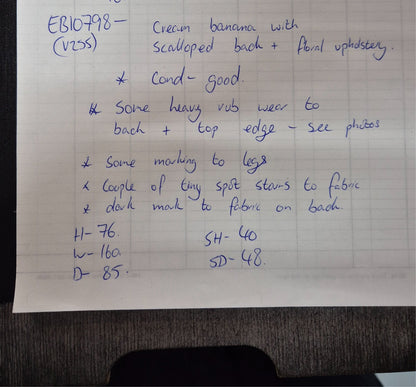 EB10798 - Cream banana with
(V255) Scalloped back + floral upholstery.
* Cond - good.
* Some heavy rub wear to
back + top edge - see photos
* Some marking to legs
* Couple of tiny spot stains to fabric
* dark mark to fabric on back.
H - 76. SH - 40
W - 160. SD - 48.
D - 85.